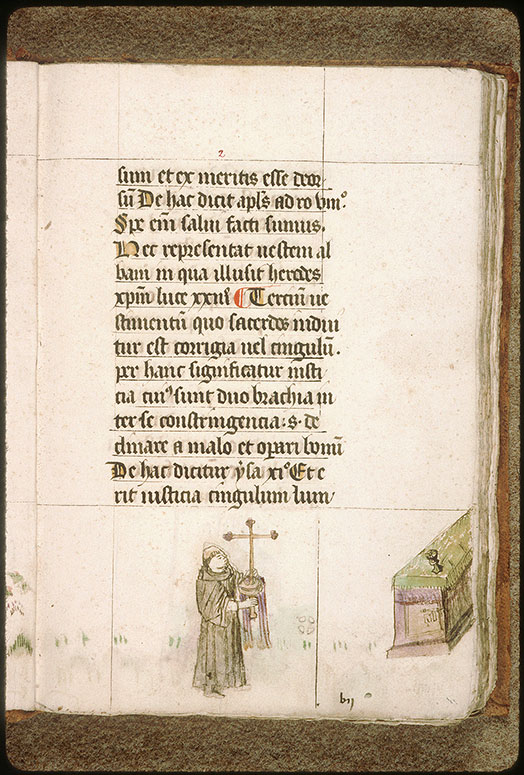 2
sum et ex meritis esse deor
sū De hac dicit apl's ad ro viii⁰
Spe em̄ salui facti sumus.
Hec representat uestem al
bam in qua illusit herodes
xp̄m luce xxiii⁰ Terciū ue
stimentū quo sacerdos indui
tur est corrigia uel cingulū.
per hanc significatur iusti
cia cui⁹ sunt duo brachia in
ter se constringencia: s. de
clinare a malo et operari bonū
De hac dicitur ysa xi⁰ Et e
rit iusticia cingulum lum